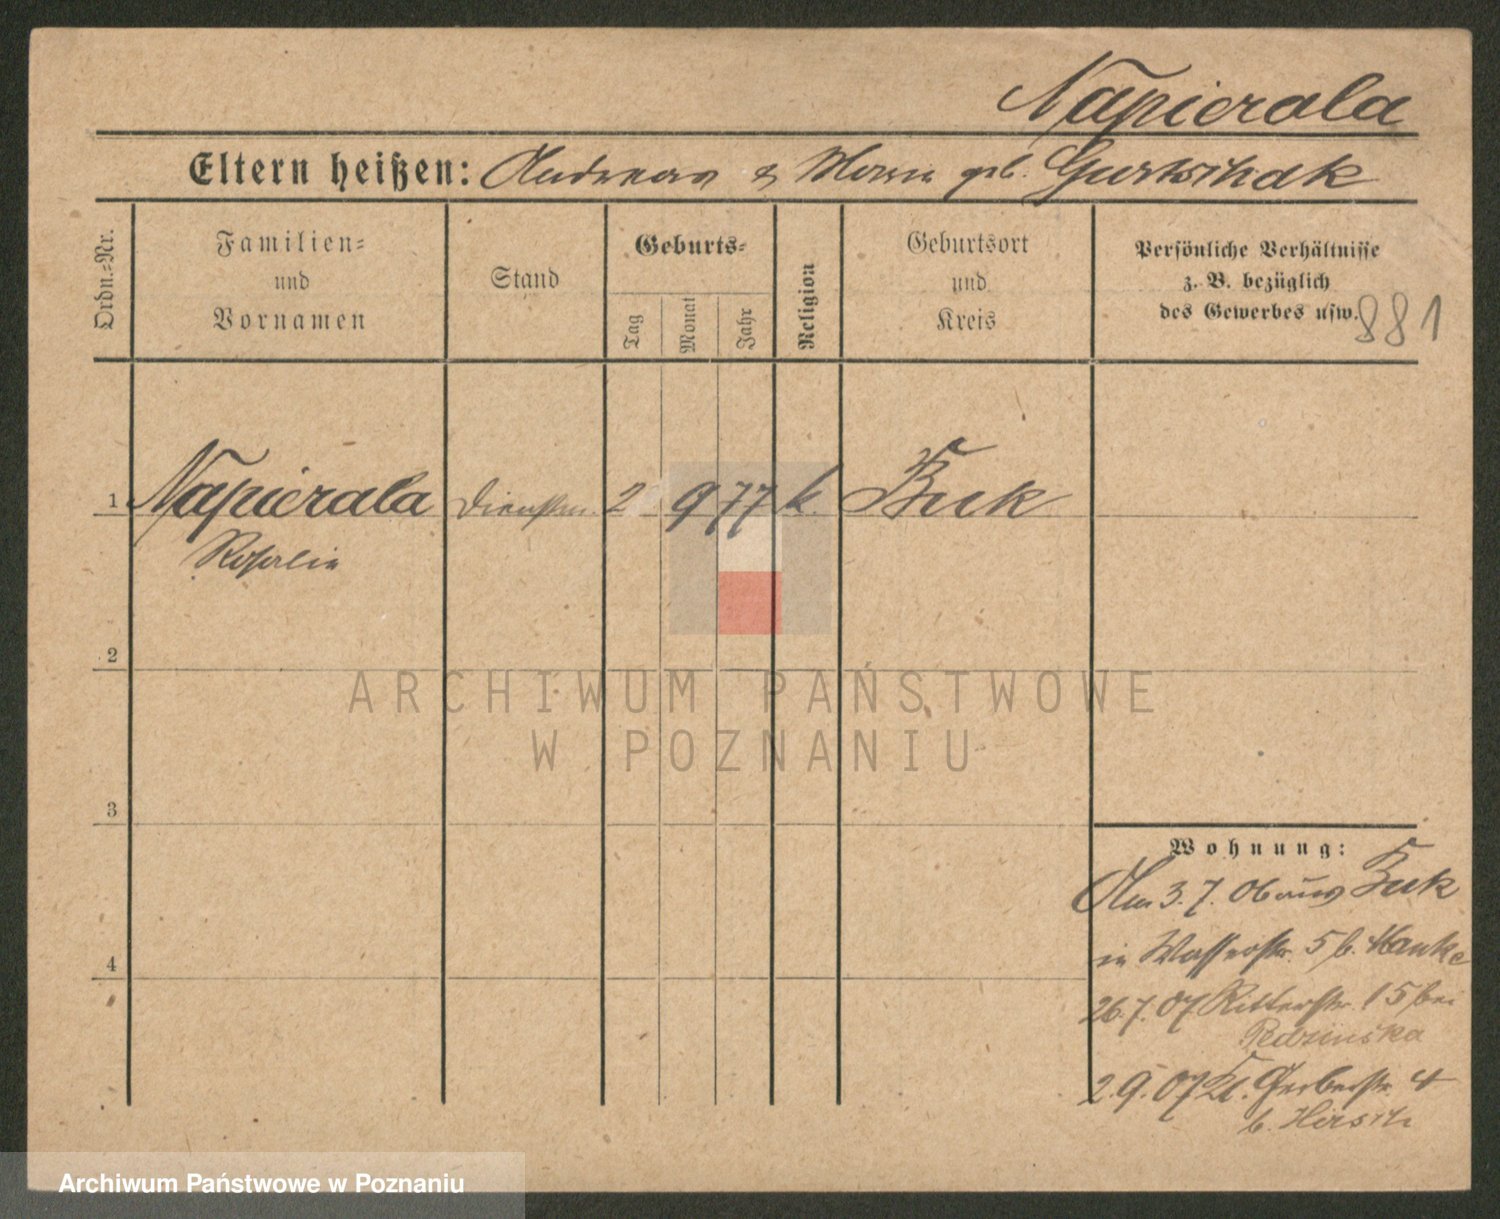 Napierala
Eltern heißen: Andreas & Marie geb. Gurtschak
Ordn.=Nr.
Familien=
und
Vornamen
Stand
Geburts=
Tag
Monat
Jahr
Religion
Geburtsort
und
Kreis
Persönliche Verhältnisse
z. B. bezüglich
des Gewerbes usw.
881
1 Napierala Dienstm. 2 9 77 k. Buk
Rosalie
2
3
4
Wohnung:
Am 3. 7. 06 aus Buk
in Wasserstr. 5 b. Hanke
26. 7. 07 Ritterstr. 15 bei
Pedzinska
2. 9. 07 Kl. Gerberstr. 4
b. Hirsch
ARCHIWUM PAŃSTWOWE
W POZNANIU
Archiwum Państwowe w Poznaniu